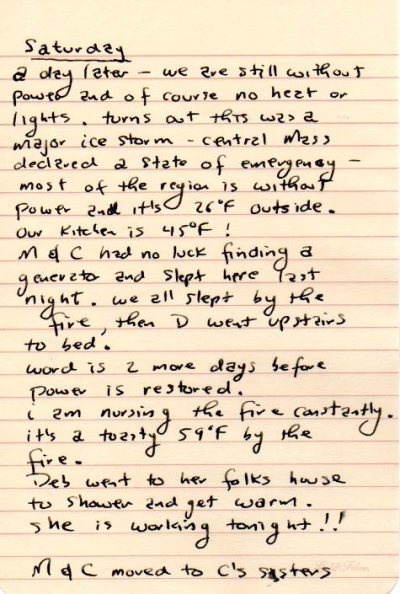 Saturday
a day later – we are still without
power and of course no heat or
lights. turns out this was a
major ice storm - central mass
declared a state of emergency –
most of the region is without
power and it's 26°F outside.
our kitchen is 45°F!
M & C had no luck finding a
generator and slept here last
night. we all slept by the
fire, then D went upstairs
to bed.
word is 2 more days before
power is restored.
i am nursing the fire constantly.
it's a toasty 59°F by the
fire.
Deb went to her folks house
to shower and get warm.
she is working tonight!!
M & C moved to C's sisters